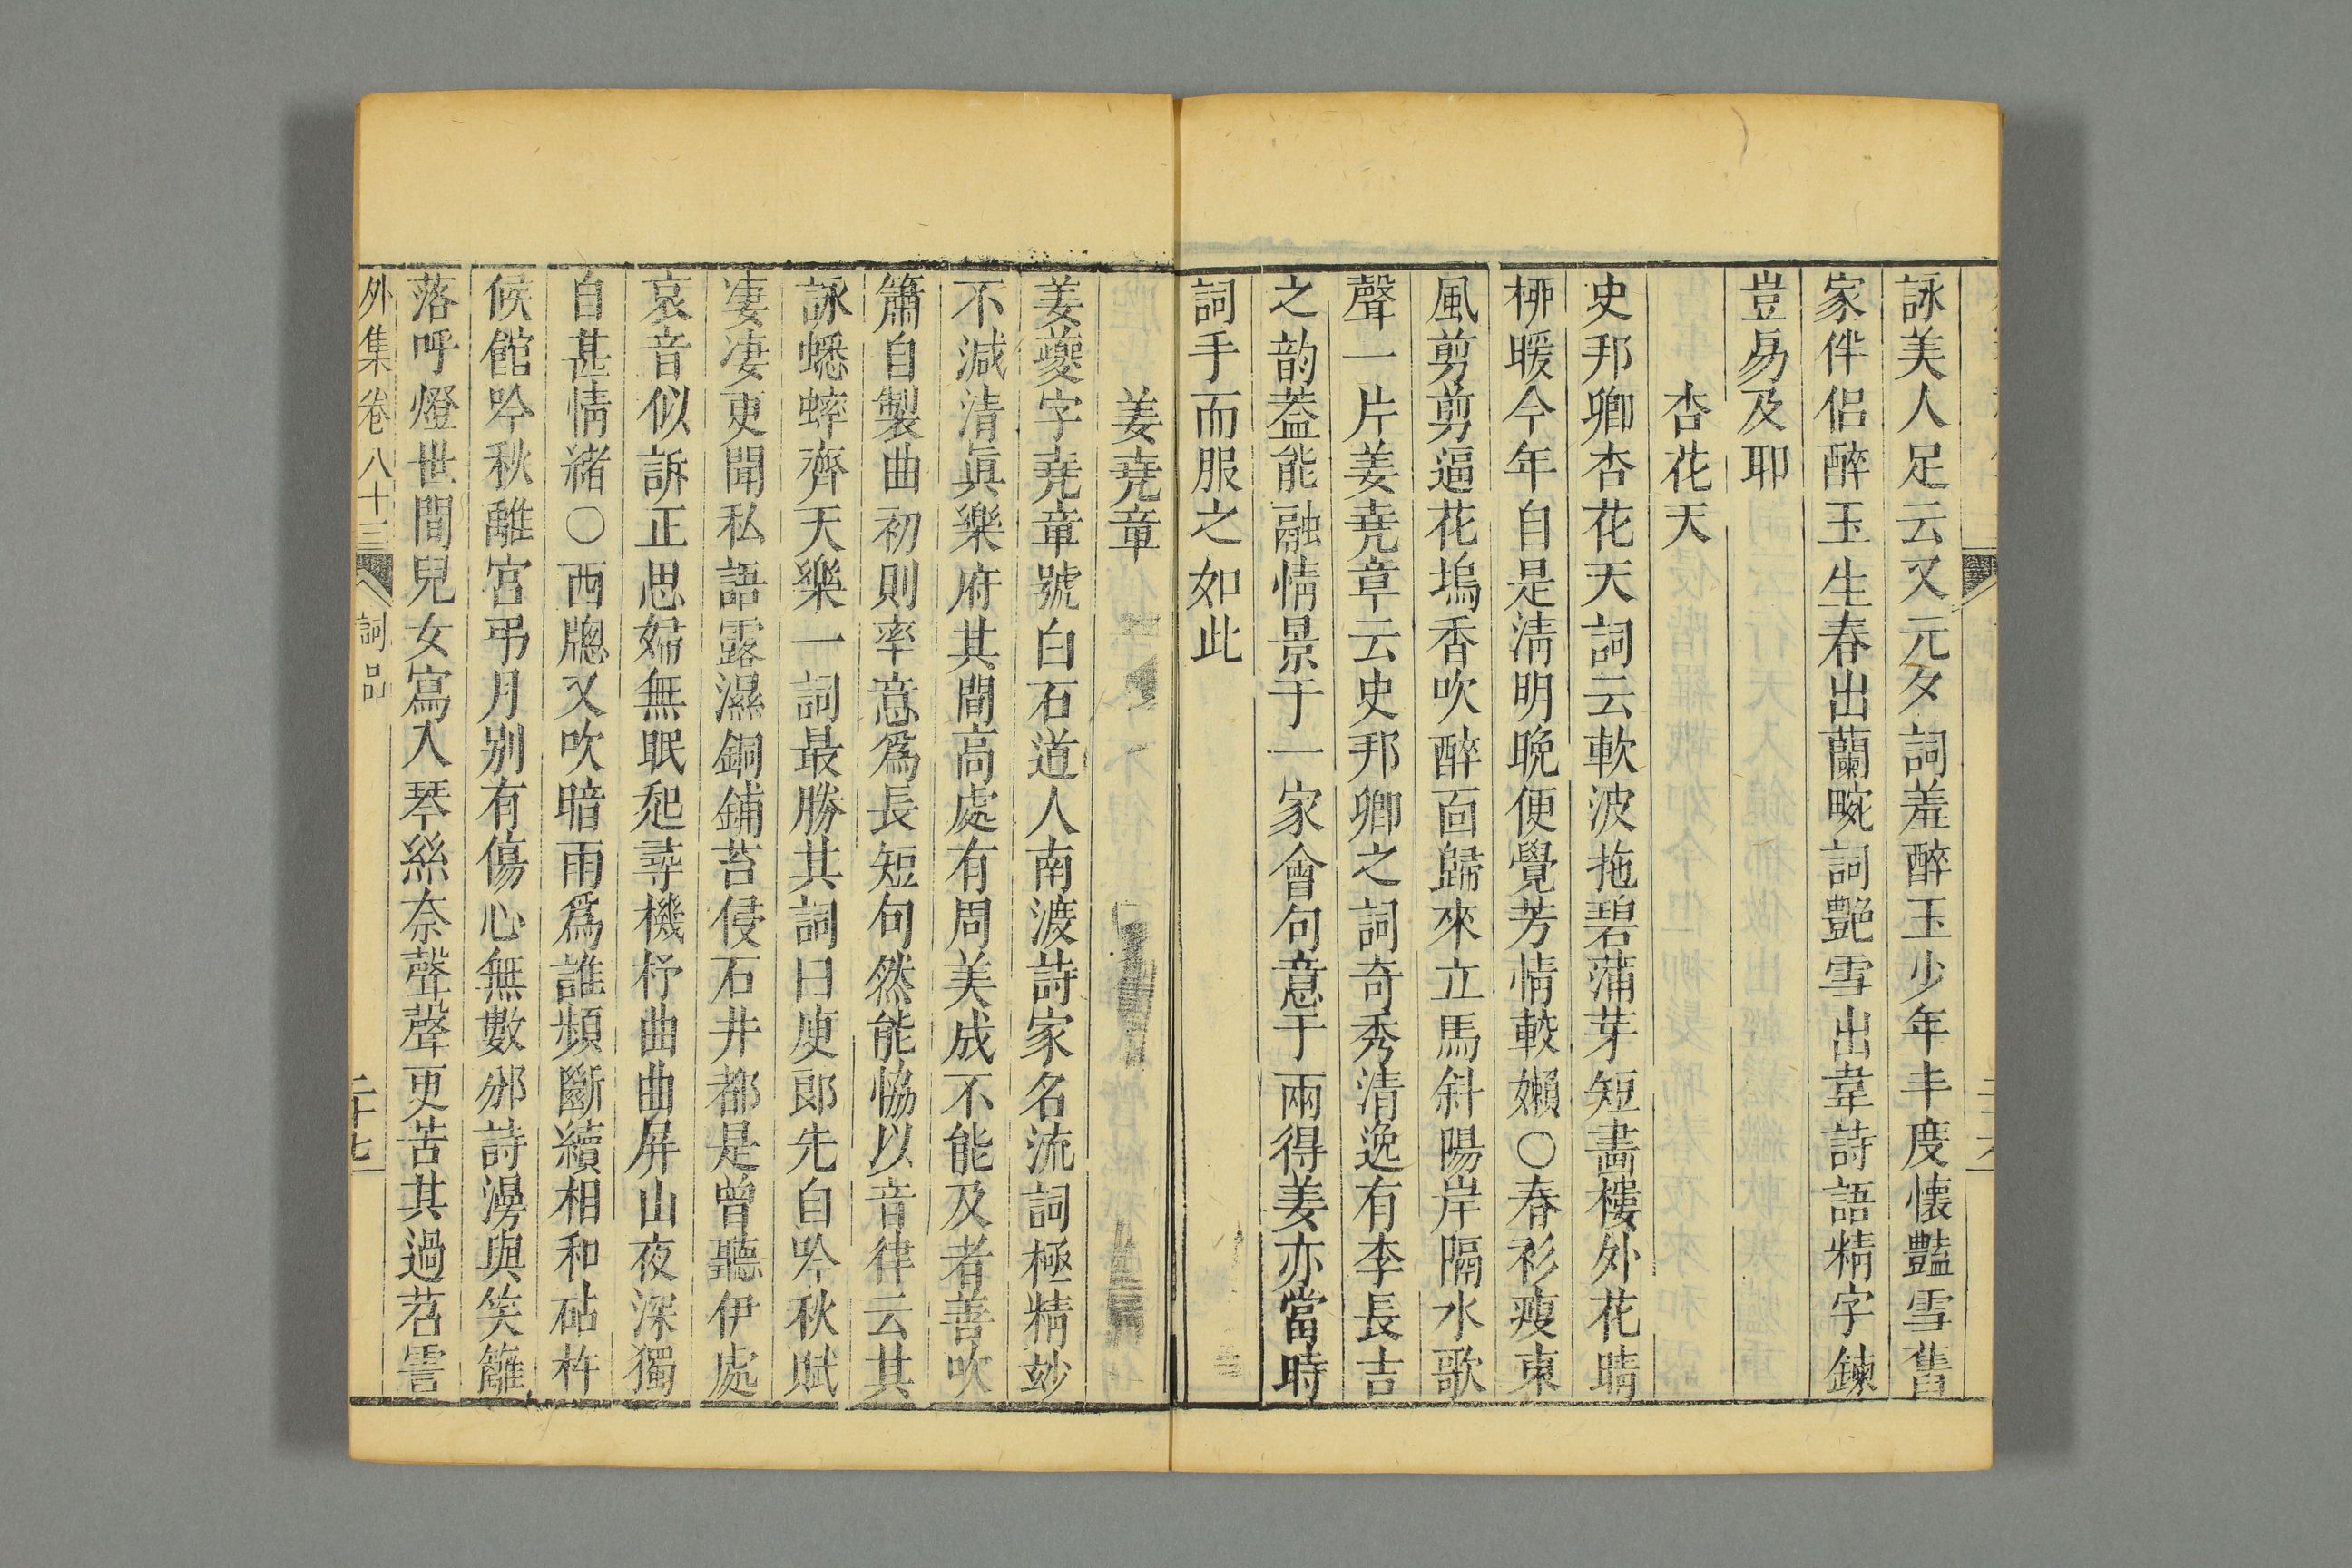 詠美人足云又元夕詞羞醉玉少年丰度懐豔雪舊
家伴侶醉玉生春出蘭畹詞艶雪出韋詩語精字鍊
豈易及耶
杏花天
史邦卿杏花天詞云軟波拖碧蒲芽短畵樓外花晴
栁暖今年自是淸明晚便覺芳情較嬾○春衫瘦東
風剪剪逼花塢香吹醉靣歸來立馬斜陽岸隔水歌
聲一片姜堯章云史邦卿之詞奇秀清逸有李長吉
之韵葢能融情景于一家會句意于兩得姜亦當時
詞手而服之如此
姜堯章
姜夔字堯章號白石道人南渡詩家名流詞極精玅
不減清眞樂府其間高處有周美成不能及者善吹
簫自製曲初則率意爲長短句然能恊以音律云其
詠蟋蟀齊天樂一詞最勝其詞曰庾郎先自吟秋賦
凄凄更聞私語露濕銅鋪苔侵石井都是曾聽伊處
哀音似訴正思婦無眠起尋機杼曲曲屏山夜深獨
自甚情緒○西牎又吹暗雨爲誰頻斷續相和砧杵
候館吟秋離宮弔月别有傷心無數邠詩漫與笑籬
落呼燈世間兒女寫入琴絲奈聲聲更苦其過苕霅
外集卷八十三 詞品 二十七